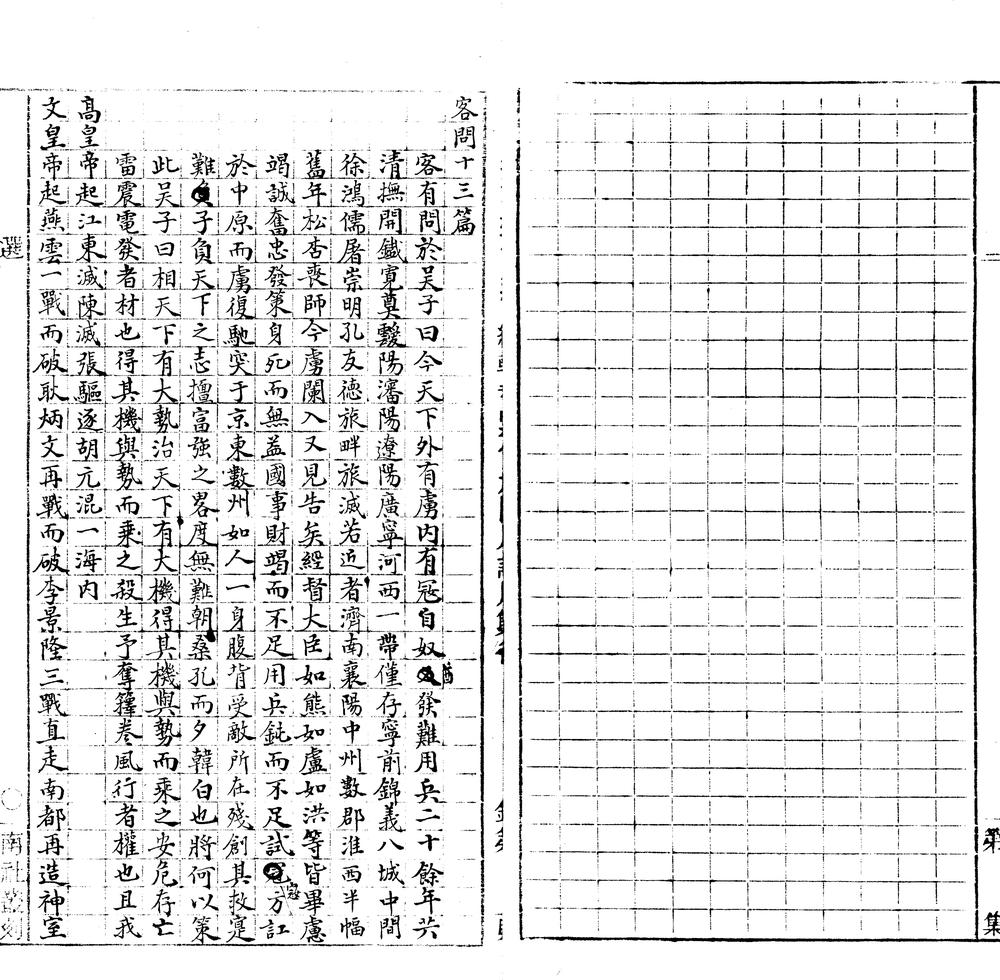 客問十三篇
客有問於吴子曰今天下外有虜内有冦自奴酋發難用兵二十餘年共
清撫開鐡寛奠靉陽瀋陽遼陽廣寧河西一帶僅存寧前錦義八城中間
徐鴻儒屠崇明孔友德旅畔旅滅若近者濟南襄陽中州數郡淮西半幅
舊年松杏喪師今虜闌入又見告矣經督大臣如熊如盧如洪等皆畢慮
竭誠奮忠發策身死而無益國事財竭而不足用兵鈍而不足試寇方訌
於中原而虜復馳突于京東數州如人一身腹背受敵所在殘創其救寔
難子負天下之志擅富強之畧度無難朝桑孔而夕韓白也將何以策
此吴子曰相天下有大勢治天下有大機得其機與勢而乘之安危存亡
雷震電發者材也得其機與勢而乘之殺生予奪籜卷風行者權也且我
高皇帝起江東滅陳滅張驅逐胡元混一海内
文皇帝起燕雲一戰而破耿炳文再戰而破李景隆三戰直走南都再造神室
選
南社叢刻
第
集